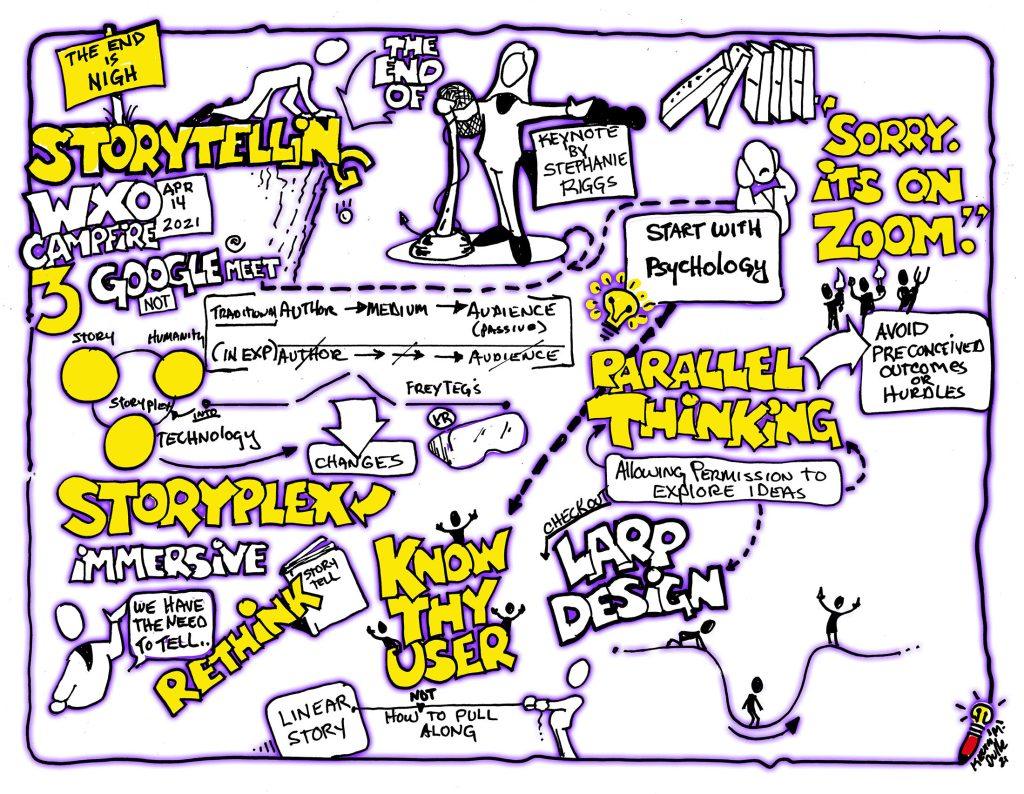 THE END
IS
NIGH
THE
END
OF
STORYTELLIN
KEYNOTE
BY
STEPHANIE
RIGGS
WXO
APR
14
2021
CAMPFIRE
3
GOOGLE MEET
NOT
"SORRY.
iTS ON
ZOOM."
START WITH
PSYCHOLOGY
TRADITIONAL AUTHOR → MEDIUM → AUDIENCE
(PASSIVE)
(IN EXP) AUTHOR → → → AUDIENCE
STORY
HUMANITY
STORYPLEX
INTR
TECHNOLOGY
FREYTEG'S
VR
CHANGES
PARALLEL
THINKING
AVOID
PRECONCEIVED
OUTCOMES
OR
HURDLES
ALLOWING PERMISSION TO
EXPLORE IDEAS
STORYPLEX
iMMERSiVE
WE HAVE
THE NEED
TO TELL..
RETHINK
STORY
TELL
KNOW
THY
USER
CHECKOUT
LARP
DESiGN
LINEAR
STORY
NOT
HOW TO PULL
ALONG